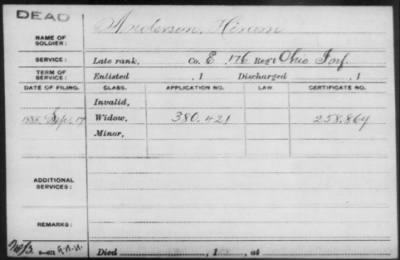 DEAD
NAME OF SOLDIER: Anderson, Hiram
SERVICE: Late rank, Co. E, 176 Reg't Ohio Inf.
TERM OF SERVICE: Enlisted , 1 Discharged , 1
DATE OF FILING. CLASS. APPLICATION NO. LAW. CERTIFICATE NO.
Invalid,
1888 Sept. 17 Widow, 380.421 258.864
Minor,
ADDITIONAL SERVICES:
REMARKS:
Died , 1 , at